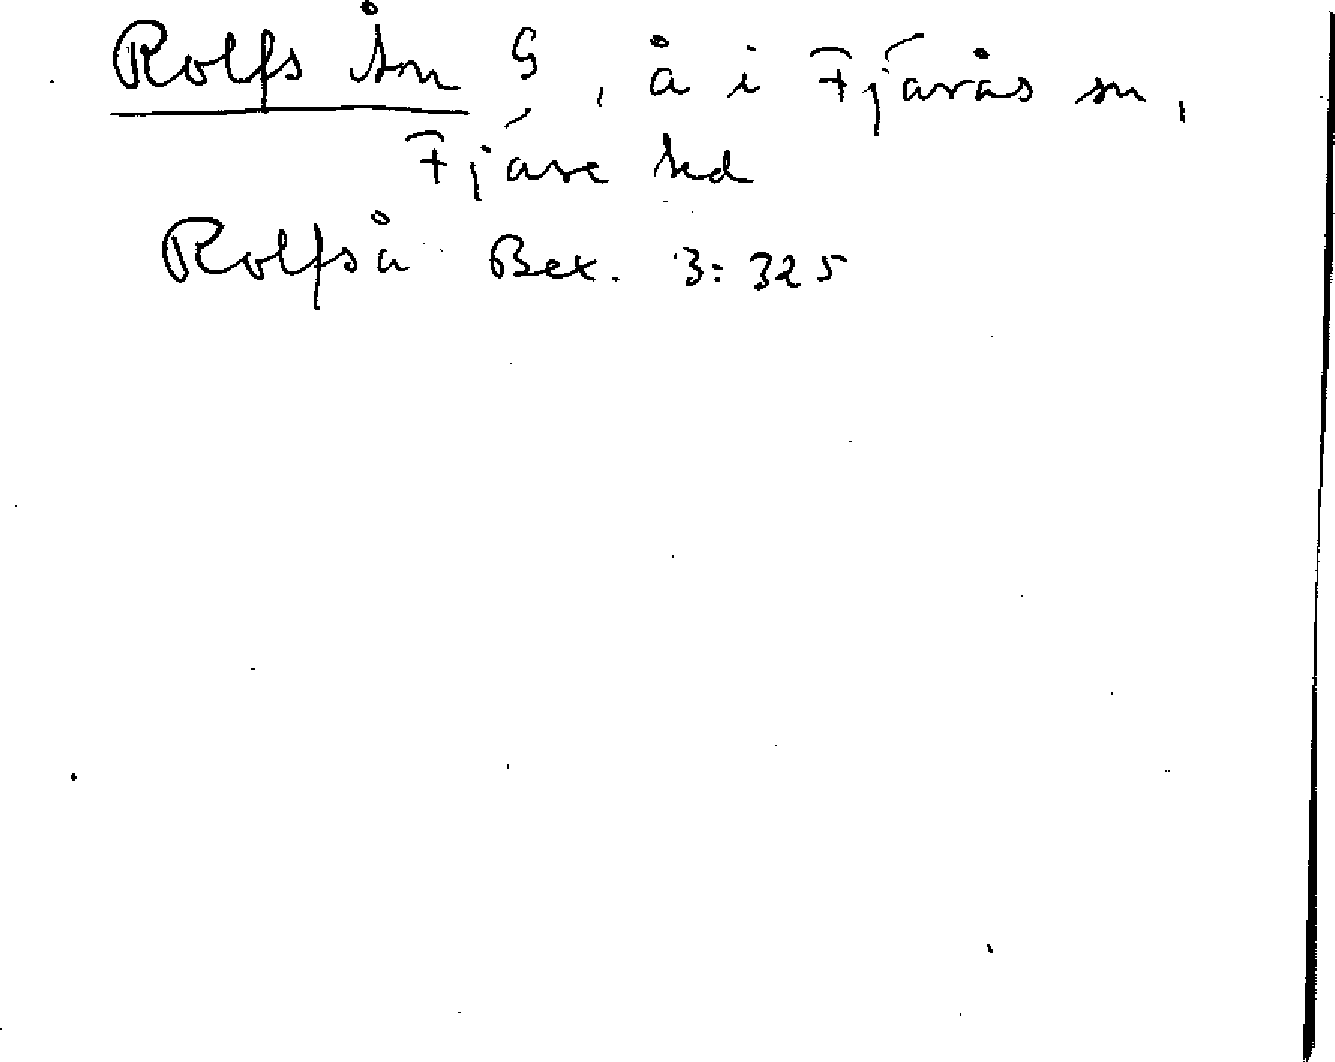 Rolfs ån G, å i Fjärås sn,
Fjäre hd
Rolfså Bex. 3:325